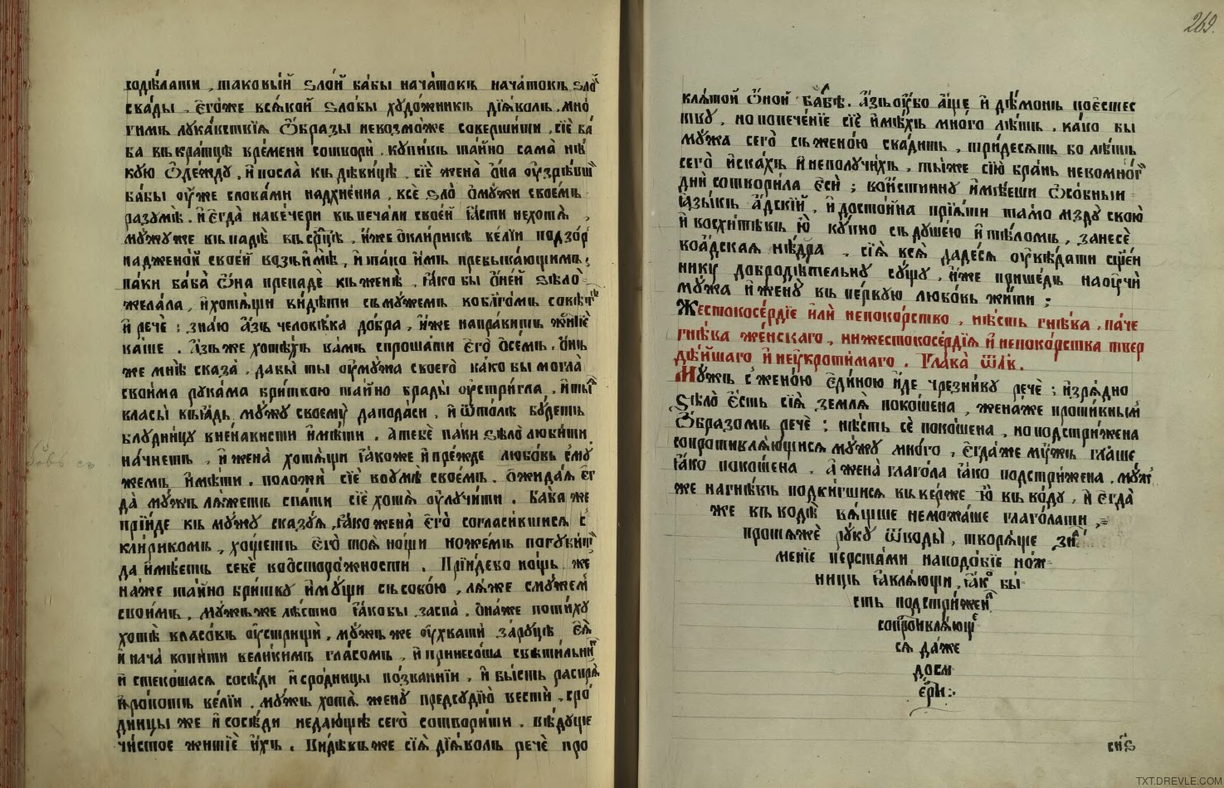 годѣлати , таковый ѕлой бабы нача́токъ нача́токъ ѕло
сва́ды . Єго́же всѧкой ѕлобы худо́жникъ дїѧволъ . мно
гимъ лука́вствїѧ Ѻбразы невозмо́же соверши́ти , сїѐ ба
ба въкра́тцѣ времени сотвори̏ . купи́въ та́йно сама̀ нѣ
кую Ѻдежду , и҆посла̀ къ дѣви́цѣ . сїѐ жена̀ Ѻна оу҆зрѣвши
бабы оу҆же слова́ми надхне́нна , всѐ ѕло̀ Ѻмужи свое́мъ
разумѣ . и҆єгда̀ наве́чери въ печали свое́й ꙗсти нехотѧ̀ ,
мужуже въ па́дѣ въ се́рдцѣ , и҆же Ѻкли́рикѣ ве́лїи подзо́р
надженой своей возъи́мѣ , и҆ та́ко и҆мъ пребыва́ющимъ ,
па́ки ба́ба Ѻна припаде къ женѣ̀ , ꙗко бы Ѻней ѕѣло̀
жела́ла , и҆хотѧщи ви́дѣти съ му́жемъ кобла́гомъ совѣтѣ
и҆ речѐ : зна́ю а҆зъ человѣ́ка до́бра , и҆же напра́витъ житїѐ
ваше . А҆зъ же хотѣхъ ва́мъ спроша́ти Єго̀ Ѻсе́мъ . Ѻнъ
же мнѣ̀ сказа̀ . дабы̀ ты оу҆мужа своего̀ ка́ко бы могла̀
свои́ма рука́ма бритвою та́йно брады̀ оу҆стри́гла , и҆ты
власы̀ въꙗдь мужу своему̀ дапода́си , и҆ Ѿто́лѣ бу́детъ
блудни́цу вненависти и҆мѣти . А҆тебѐ па́ки ѕѣло люби́ти
начне́тъ , и҆ жена̀ хотѧщи ꙗкоже и҆ пре́жде любо́вь єму
жемъ и҆мѣти . положи̏ сїѐ воумѣ̀ свое́мъ . Ѻжида́ѧ є҆г
да̀ му́жъ лѧжетъ спа́ти сїѐ хотѧ̀ оу҆лучи́ти . Ба́ба же
прїи́де къ му́жу сказу́ѧ , ꙗко жена̀ Єго̀ согласи́вшисѧ с̾
кли́рикомъ , хо́щетъ Єго̀ тоѧ̀ но́щи ноже́мъ погуби́ти
да и҆мѣетъ себѐ водсторо́жености . Прїи́дево нощь , же
на́же та́йно бри́тву и҆му́щи съ собо́ю , лѧже сму́жемъ
свои́мъ , му́жъже лѣстно ꙗкобы̀ заспа̀ , Ѻна́же по́тиху
хотѣ̀ власо́въ оу҆стрищи̏ , му́жъ же оу҆хвати̏ за́руцѣ Єѧ̀
и҆ нача̀ вопи́ти вели́кимъ гла́сомъ , и҆ принесо́ша свѣти́льни
и҆ стеко́шасѧ сосѣ́ди и҆ сро́дницы позва́нїи , и҆ бы́сть распрѧ
и҆ ро́потъ ве́лїи . му́жъ хотѧ̀ жену̀ предсудїю вести̏ . сро
дницы же и҆ сосѣди недаю́щіе сего̀ сотвори́ти . вѣду́ще
чи́стое житїѐ и҆хъ . Ви́дѣвъже сїѧ̀ дїѧволъ речѐ про
269.
клѧтой Ѻной ба́бѣ . А҆зъ оу҆́бо а҆ще и҆ дѣмонъ поєстес
тву , но попече́нїе сїѐ и҆мѣхъ много лѣтъ . ка́ко бы
му́жа сего̀ съ жено́ю сва́дить , три́десѧть бо лѣтъ
сего̀ и҆ска́хъ и҆ неполучи́хъ , ты́же сїю̀ брань неко́мног
дни̏ сотвори́ла є҆си̏ ; вои́стинну и҆мѣеши Ѻсо́бный
ꙗзы́къ а҆́дскїй , и҆ досто́йна прїѧти та́мо мзду свою̀
и҆ восхити́въ ю҆̀ ку́пно съ душе́ю и҆ тѣломъ , занесѐ
воа́дская нѣдра . сїѧ̀ всѧ̀ даде́сѧ оу҆вѣ́дати сщ҃ен
нику добродѣтельну су́щу , и҆же прише́дъ наоучи̏
му́жа и҆ жену̀ въ пе́рвую любо́вь жи́ти ;
Жестокосе́рдїе и҆ли̏ непоко́рство , нѣ́сть гнѣва , па́че
гнѣва же́нскаго , нижестокосе́рдїѧ и҆ непоко́рства твер
дѣ́йшаго и҆ неукроти́маго . Глава̀ Ѿлв .
Му́жъ с̾жено́ю є҆ди́ною и҆де чрезни́ву речѐ ; и҆зрѧдно
ѕѣло Єсть сїѧ̀ землѧ̀ поко́шена , жена́же проти́внымъ
Ѻбразомъ речѐ ; нѣсть сѐ поко́шена , но подстри́жена
сопротивлѧющисѧ му́жу мно́го . Єгда́же му́жъ гл҃аше
ꙗко поко́шена , а҆ жена̀ глаго́ла ꙗко подстри́жена . муж
же нагнѣвъ подви́гшисѧ вь ве́рже ю҆̀ въ во́ду , и҆ є҆гда̀
же въ водѣ̀ бѧше немо́жаше глаго́лати ,
протѧже ру́ку Ѿводы̀ , творѧ́ще зн
менїе перста́ми наподо́бїе нож
ницъ ꙗвлѧющи , ꙗк бы
сть подстри́жен
сопротивлѧющ
сѧ да́же
досм
е́рти :.
сн҃ѕ
TXT.DREVLE.COM